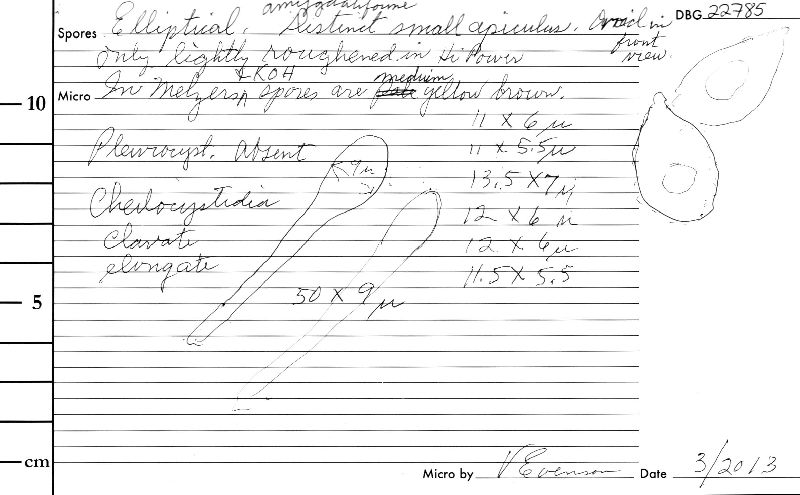 amygdaliforme DBG 22785
Spores Elliptical. Distinct small apiculus. Ovoid in front view.
only lightly roughened in Hi Power
+ KOH medium
10 Micro In Melzers spores are pale yellow brown.
11 X 6 µ
Pleurocyst. Absent 11 X 5.5µ
9µ 13.5 X 7µ
Cheilocystidia 12 X 6 µ
Clavate 12 X 6µ
elongate 11.5 X 5.5
5 50 X 9 µ
cm Micro by V Evenson Date 3/2013